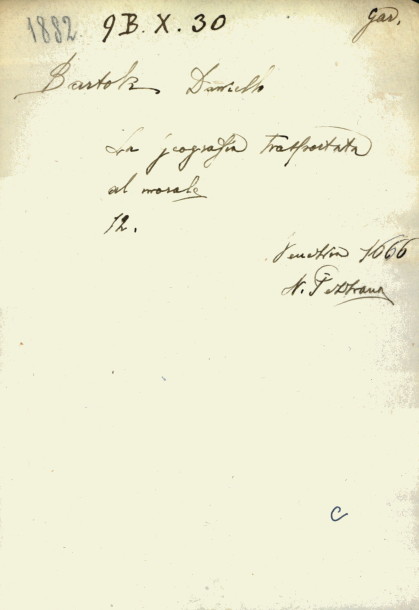 1882 9B. X. 30 Gar.
Bartoli Daniello
La geografia trasportata
al morale
12.
Venetia 1666
N. Pezzana
C